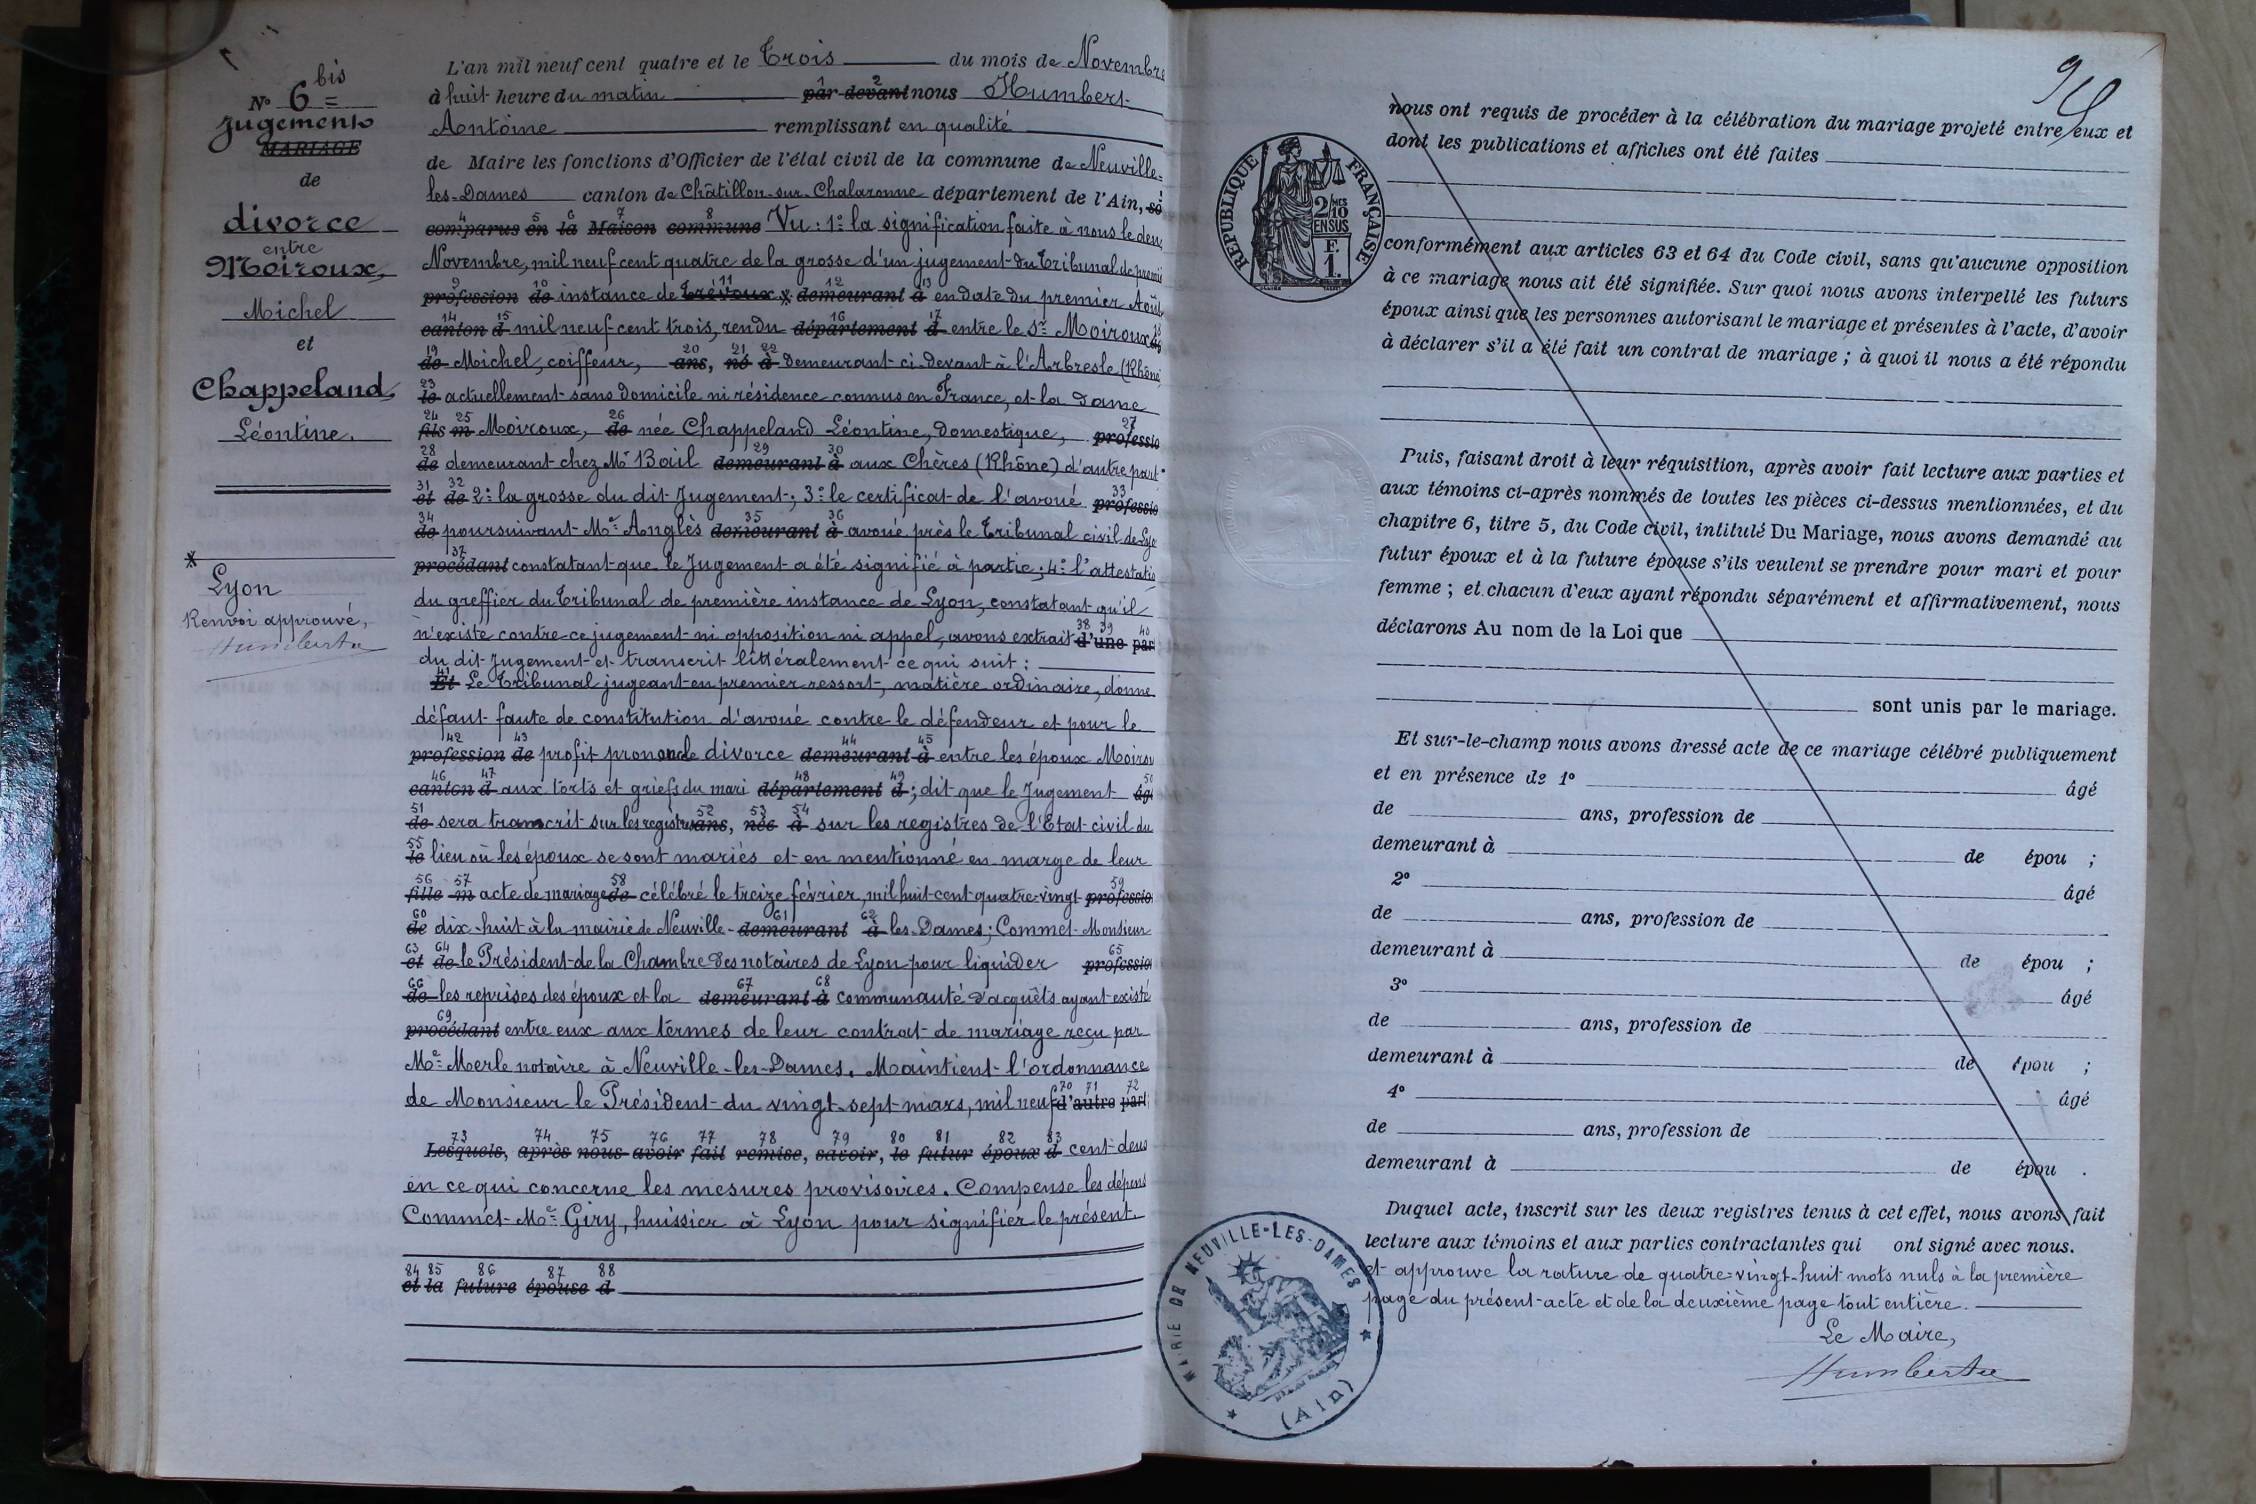 bis
N° 6 =
Jugement
MARIAGE
de
divorce
entre
Moiroux,
Michel
et
Chappeland,
Léontine.
*
Lyon
Renvoi approuvé,
L'an mil neuf cent quatre et le Trois du mois de Novembre
à huit heure du matin par devant nous Humbert
Antoine remplissant en qualité
de Maire les fonctions d'Officier de l'état civil de la commune de Neuville-
les-Dames canton de Châtillon-sur-Chalaronne département de l'Ain, so
comparus en la Maison commune Vu : 1° la signification faite à nous le deux
Novembre, mil neuf cent quatre de la grosse d'un jugement du Tribunal de premiè
profession de instance de Trévoux * demeurant à en date du premier Août
canton d mil neuf cent trois, rendu département d entre le Sr Moiroux
de Michel, coiffeur, ans, né à demeurant ci-devant à l'Arbresle (Rhône
le actuellement sans domicile ni résidence connus en France, et la Dame
fils m Moiroux, de née Chappeland Léontine, domestique, professio
de demeurant chez Mr Bail demeurant à aux Chères (Rhône) d'autre part
et de 2° la grosse du dit Jugement ; 3° le certificat de l'avoué professio
de poursuivant Me Anglès demeurant à avoué près le Tribunal civil de Lyo
procédant constatant que le Jugement a été signifié à partie ; 4° l'attestatio
du greffier du Tribunal de première instance de Lyon, constatant qu'il
n'existe contre ce jugement ni opposition ni appel, avons extrait d'une par
du dit Jugement et transcrit littéralement ce qui suit :
Et Le Tribunal jugeant en premier ressort, matière ordinaire, donne
défaut faute de constitution d'avoué contre le défendeur et pour le
profession de profit prononce le divorce demeurant à entre les époux Moirou
canton d aux torts et griefs du mari département d ; dit que le Jugement âgé
de sera transcrit sur les registres ans, née à sur les registres de l'Etat-civil du
le lieu où les époux se sont mariés et en mentionné en marge de leur
fille m acte de mariage de célébré le treize février, mil huit cent quatre-vingt professio
de dix-huit à la mairie de Neuville- demeurant à les-Dames ; Commet Monsieur
et de le Président de la Chambre des notaires de Lyon pour liquider professio
de les reprises des époux et la demeurant à communauté d'acquêts ayant existé
procédant entre eux aux termes de leur contrat de mariage reçu par
Me Merle notaire à Neuville-les-Dames. Maintient l'ordonnance
de Monsieur le Président du vingt-sept mars, mil neuf d'autre part
Lesquels, après nous avoir fait remise, savoir, le futur époux d cent-deux
en ce qui concerne les mesures provisoires. Compense les dépens
Commet Me Giry, huissier à Lyon pour signifier le présent.
et la future épouse d
RÉPUBLIQUE FRANÇAISE
2/10 MES
EN SUS
F.
1.
nous ont requis de procéder à la célébration du mariage projeté entre eux et
dont les publications et affiches ont été faites
conformément aux articles 63 et 64 du Code civil, sans qu'aucune opposition
à ce mariage nous ait été signifiée. Sur quoi nous avons interpellé les futurs
époux ainsi que les personnes autorisant le mariage et présentes à l'acte, d'avoir
à déclarer s'il a été fait un contrat de mariage ; à quoi il nous a été répondu
Puis, faisant droit à leur réquisition, après avoir fait lecture aux parties et
aux témoins ci-après nommés de toutes les pièces ci-dessus mentionnées, et du
chapitre 6, titre 5, du Code civil, intitulé Du Mariage, nous avons demandé au
futur époux et à la future épouse s'ils veulent se prendre pour mari et pour
femme ; et chacun d'eux ayant répondu séparément et affirmativement, nous
déclarons Au nom de la Loi que
sont unis par le mariage.
Et sur-le-champ nous avons dressé acte de ce mariage célébré publiquement
et en présence de 1° âgé
de ans, profession de
demeurant à de épou ;
2° âgé
de ans, profession de
demeurant à de épou ;
3° âgé
de ans, profession de
demeurant à de épou ;
4° âgé
de ans, profession de
demeurant à de épou .
Duquel acte, inscrit sur les deux registres tenus à cet effet, nous avons fait
lecture aux témoins et aux parties contractantes qui ont signé avec nous.
et approuve la rature de quatre-vingt-huit mots nuls à la première
page du présent acte et de la deuxième page tout entière.
Le Maire,
MAIRIE DE NEUVILLE-LES-DAMES
(Ain)